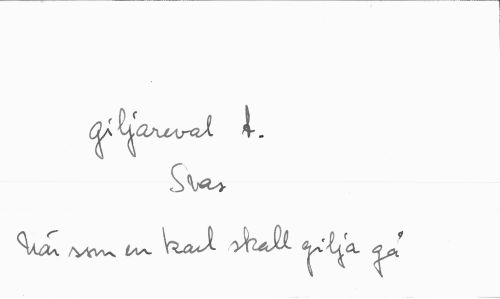 giljareval t.
Svar
När som en karl skall gilja gå